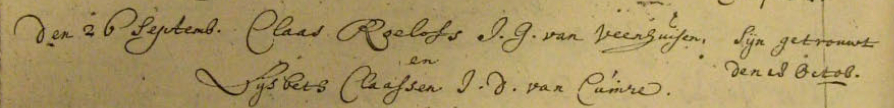 Den 26 Septemb. Claas Roelofs J. G. van Veenhuisen. Sijn getrouwt
en den 18 Octob.
Lijsbets Claassen J. D. van Cúinre.